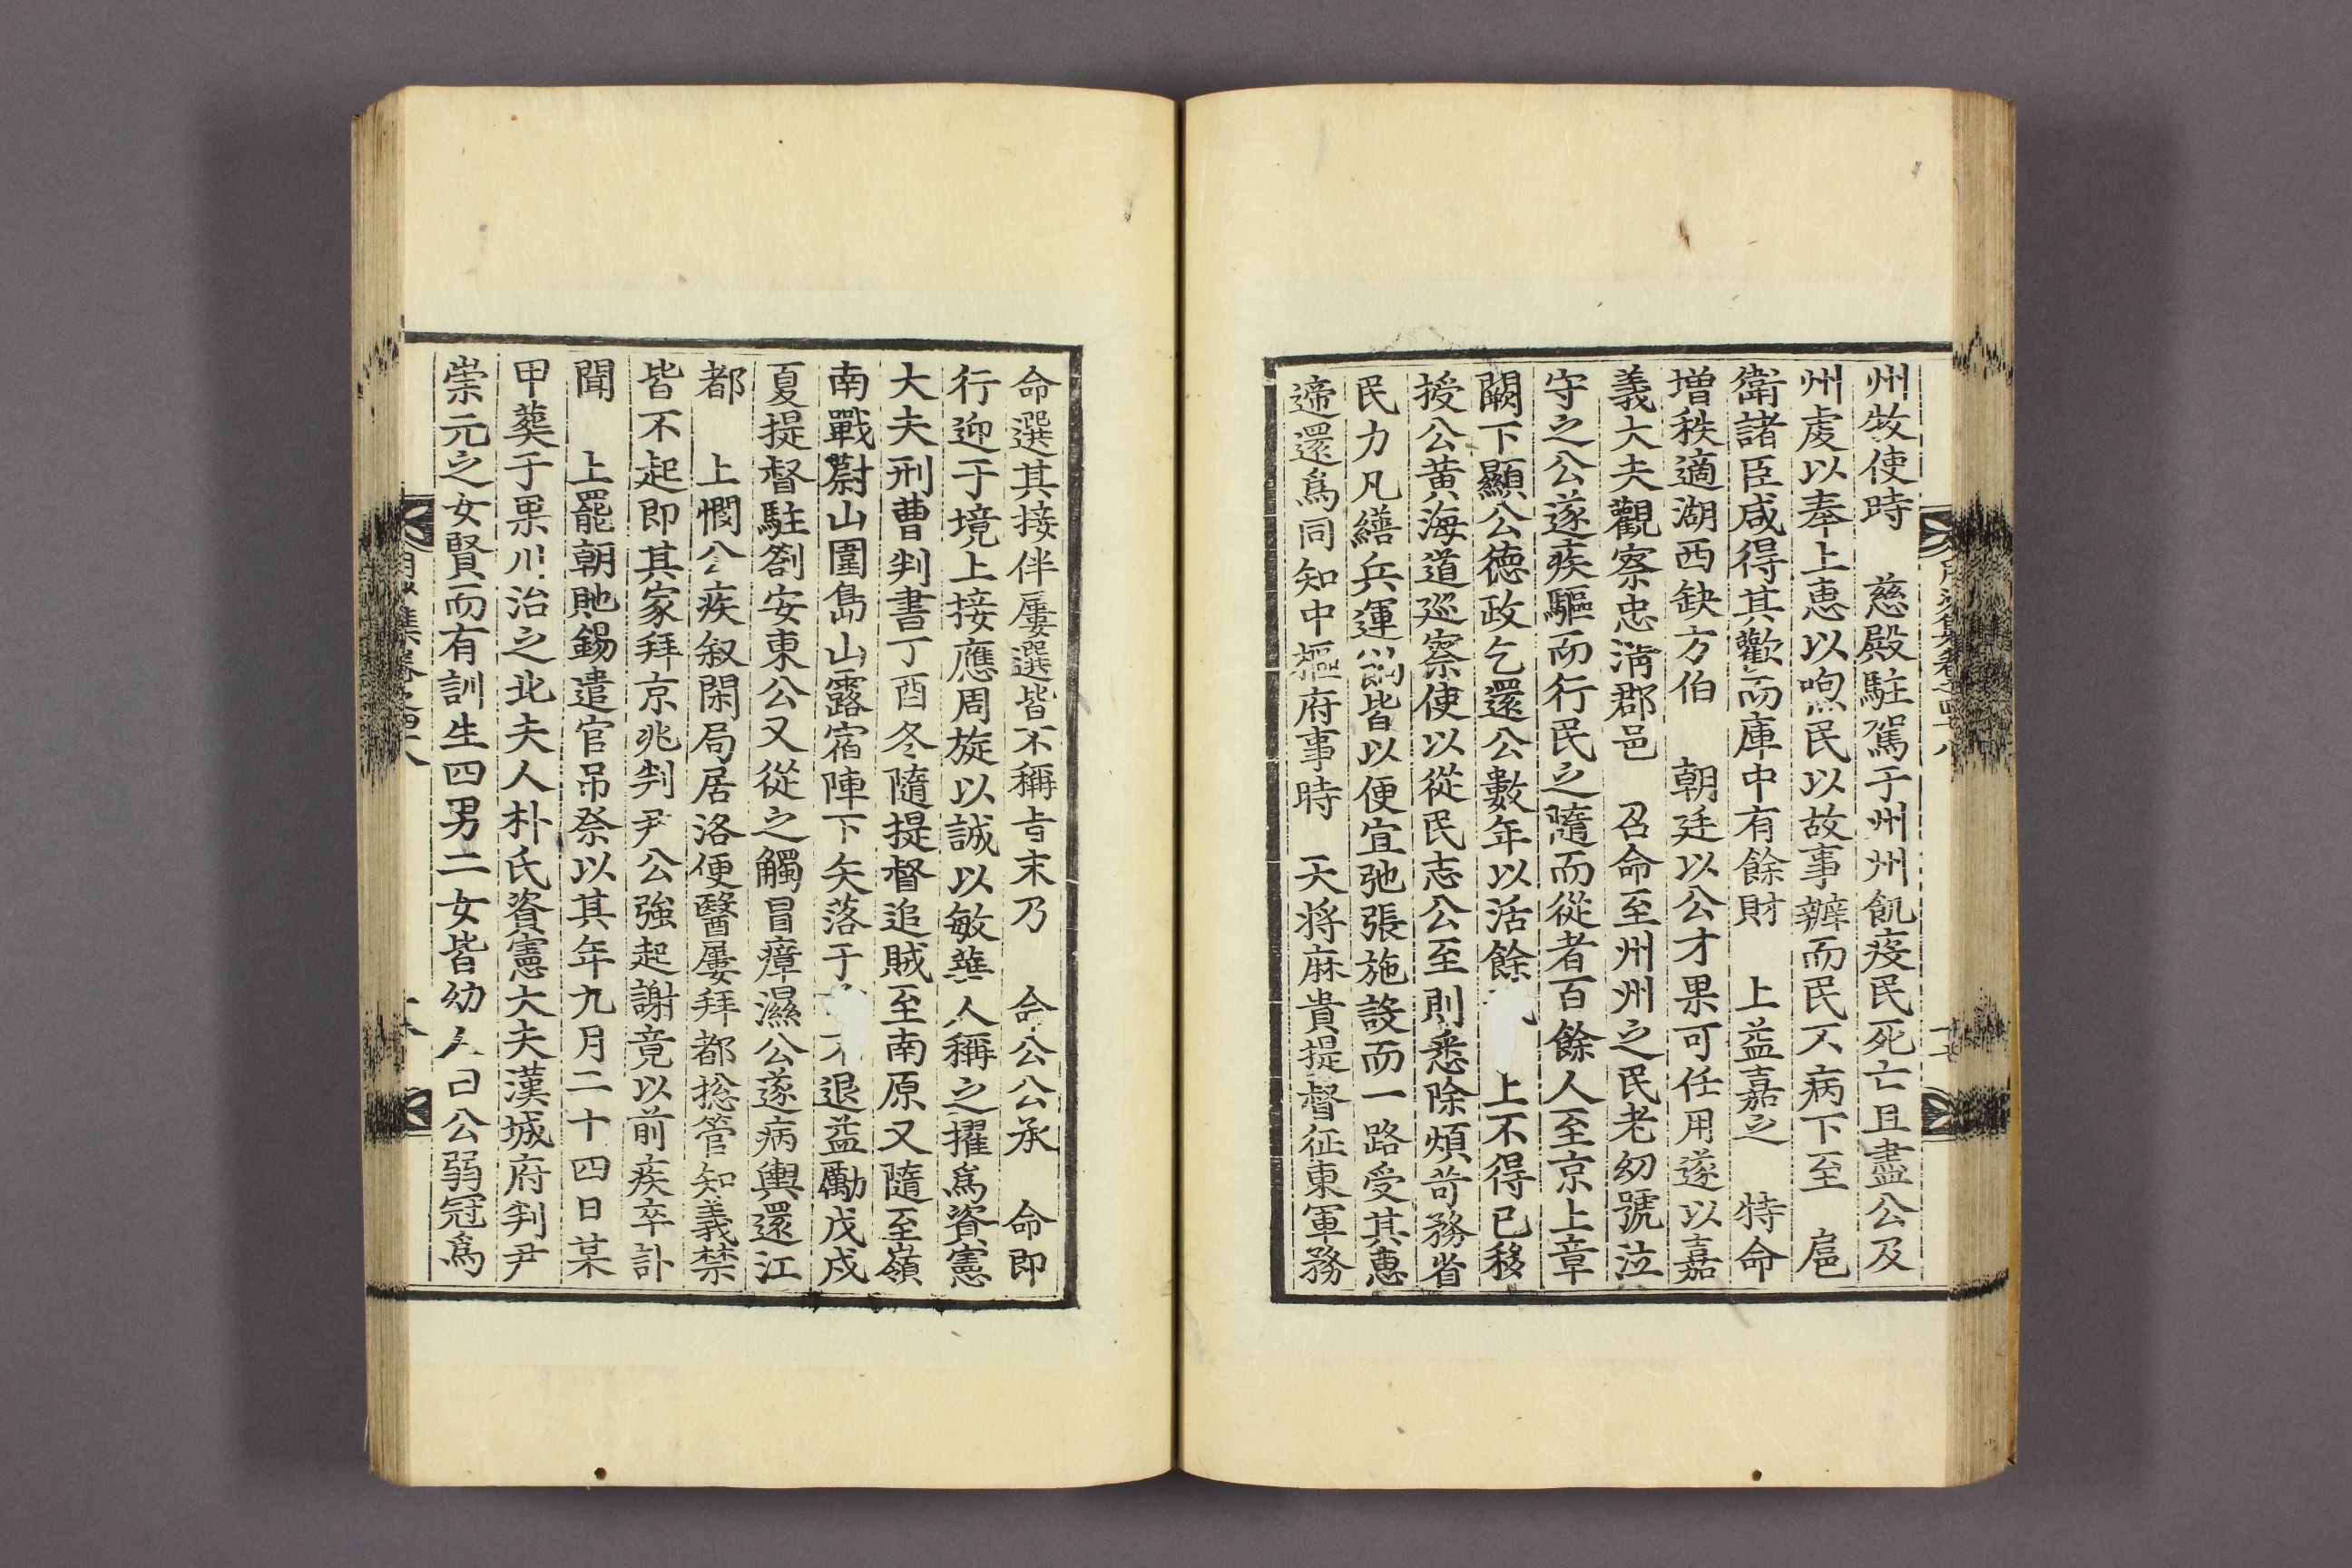 州牧使時 慈殿駐駕于州州飢疫民死亡且盡公及
州處以奉上惠以呴民以故事辦而民不病下至 扈
衛諸臣咸得其歡而庫中有餘財 上益嘉之 特命
增秩適湖西缺方伯 朝廷以公才果可任用遂以嘉
義大夫觀察忠淸郡邑 召命至州州之民老幼號泣
守之公遂疾驅而行民之隨而從者百餘人至京上章
闕下顯公德政乞還公數年以活餘 上不得已移
授公黃海道巡察使以從民志公至則悉除煩苛務省
民力凡繕兵運餉皆以便宜弛張施設而一路受其惠
遞還爲同知中樞府事時 天將麻貴提督征東軍務
命選其接伴屢選皆不稱旨末乃 命公公承 命即
行迎于境上接應周旋以誠以敏華人稱之擢爲資憲
大夫刑曹判書丁酉冬隨提督追賊至南原又隨至嶺
南戰蔚山圍島山山露宿陣下矢落于 不退益勵戊戌
夏提督駐劄安東公又從之觸冒瘴濕公遂病輿還江
都 上憫公疾叙閑局居洛便醫屢拜都摠管知義禁
皆不起即其家拜京兆判尹公強起謝竟以前疾卒訃
聞 上罷朝貤錫遣官吊祭以其年九月二十四日某
甲葬于果川治之北夫人朴氏資憲大夫漢城府判尹
崇元之女賢而有訓生四男二女皆幼 曰公弱冠爲